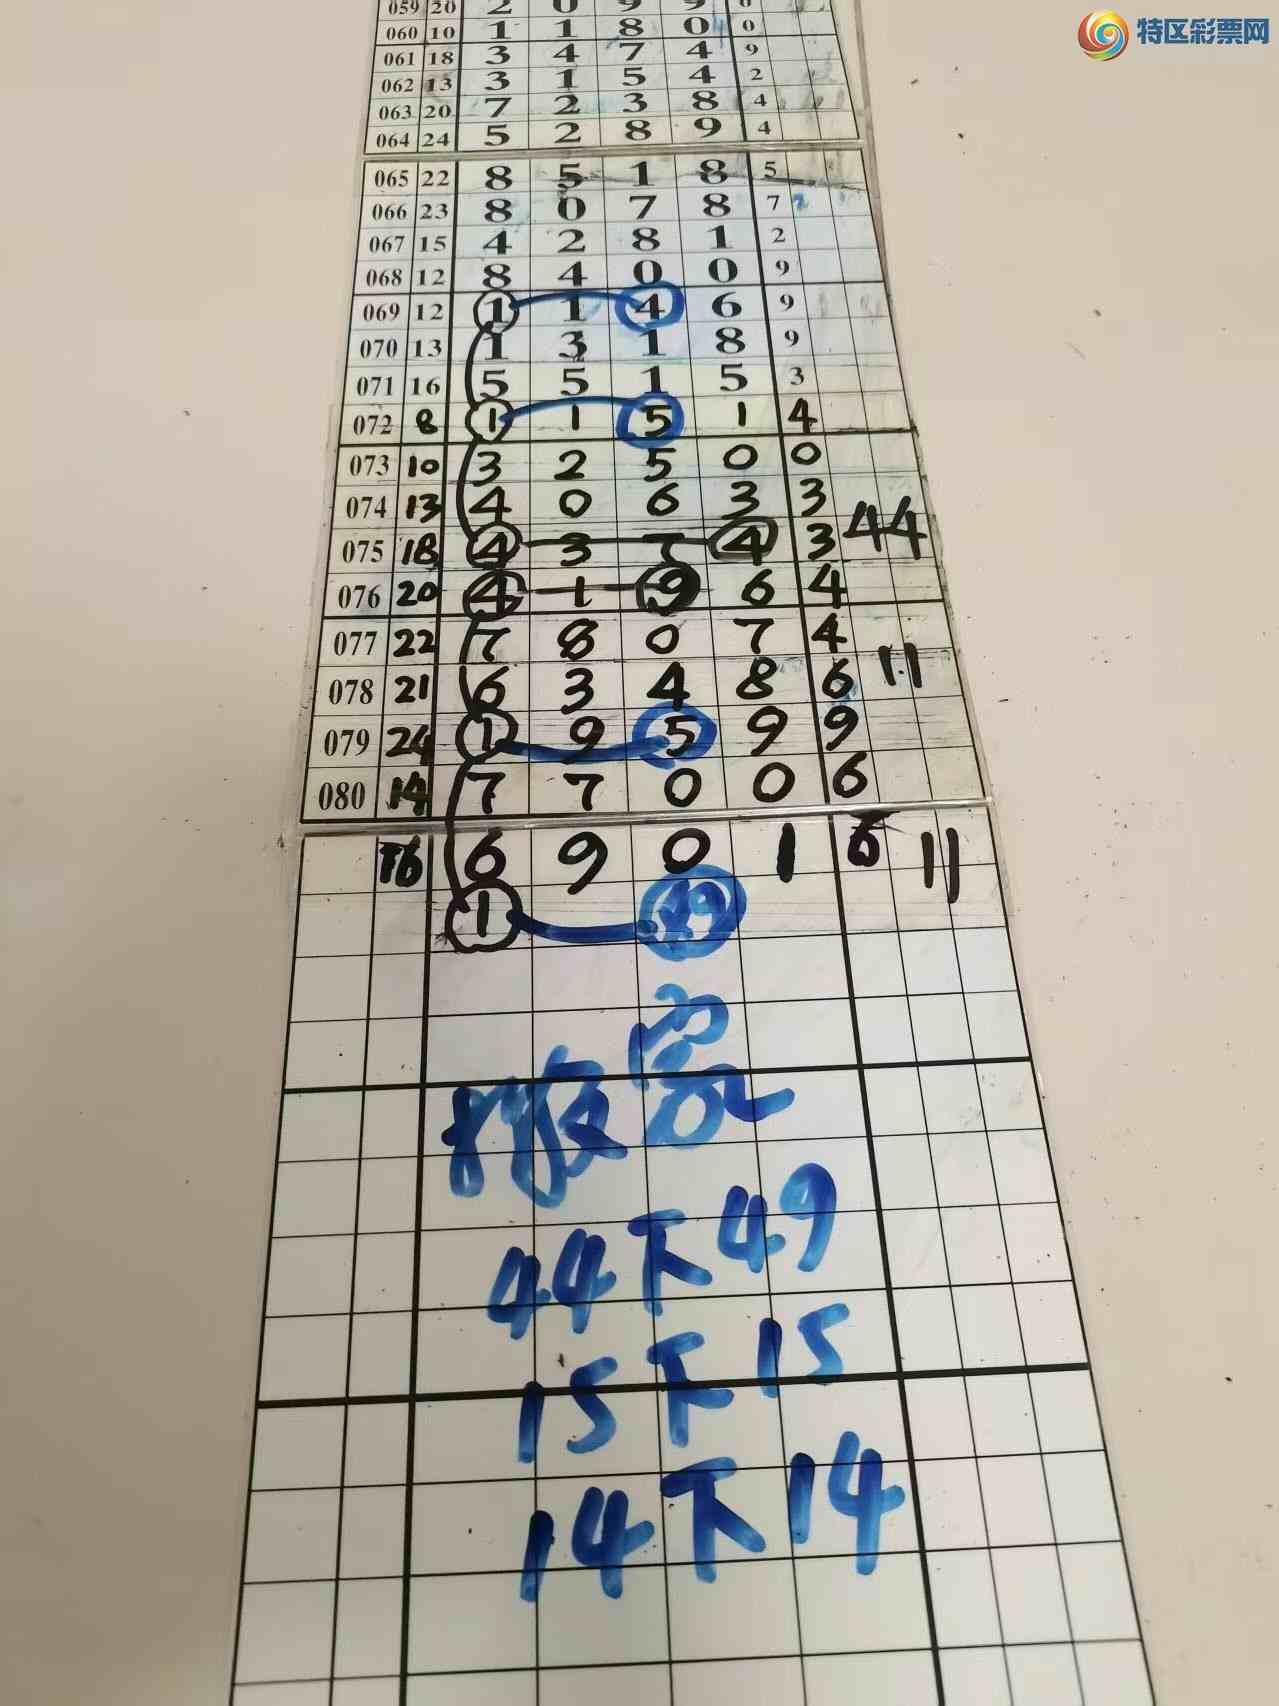 特区彩票网
059 20 2 0 9 9 0
060 10 1 1 8 0 0
061 18 3 4 7 4 9
062 13 3 1 5 4 2
063 20 7 2 3 8 4
064 24 5 2 8 9 4
065 22 8 5 1 8 5
066 23 8 0 7 8 7
067 15 4 2 8 1 2
068 12 8 4 0 0 9
069 12 1 1 4 6 9
070 13 1 3 1 8 9
071 16 5 5 1 5 3
072 8 1 1 5 1 4
073 10 3 2 5 0 0
074 13 4 0 6 3 3
075 18 4 3 7 4 3 44
076 20 4 1 9 6 4
077 22 7 8 0 7 4
078 21 6 3 4 8 6 11
079 24 1 9 5 9 9
080 14 7 7 0 0 6
16 6 9 0 1 6 11
1 49
44下49
15下15
14下14